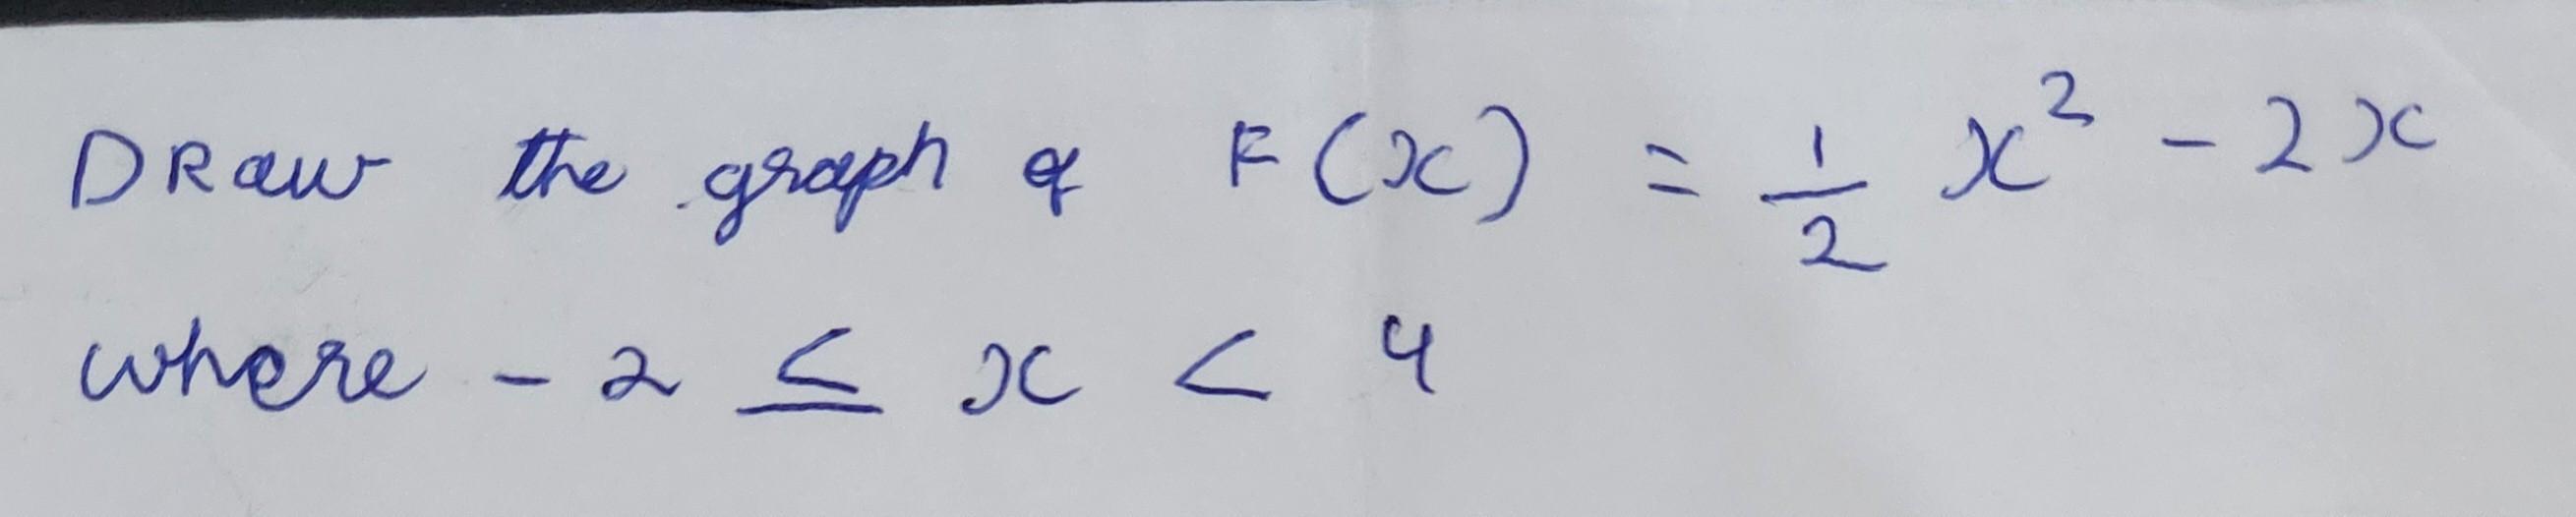 DRaw the graph of F(x) = 1/2 x² - 2x
where - 2 ≤ x < 4